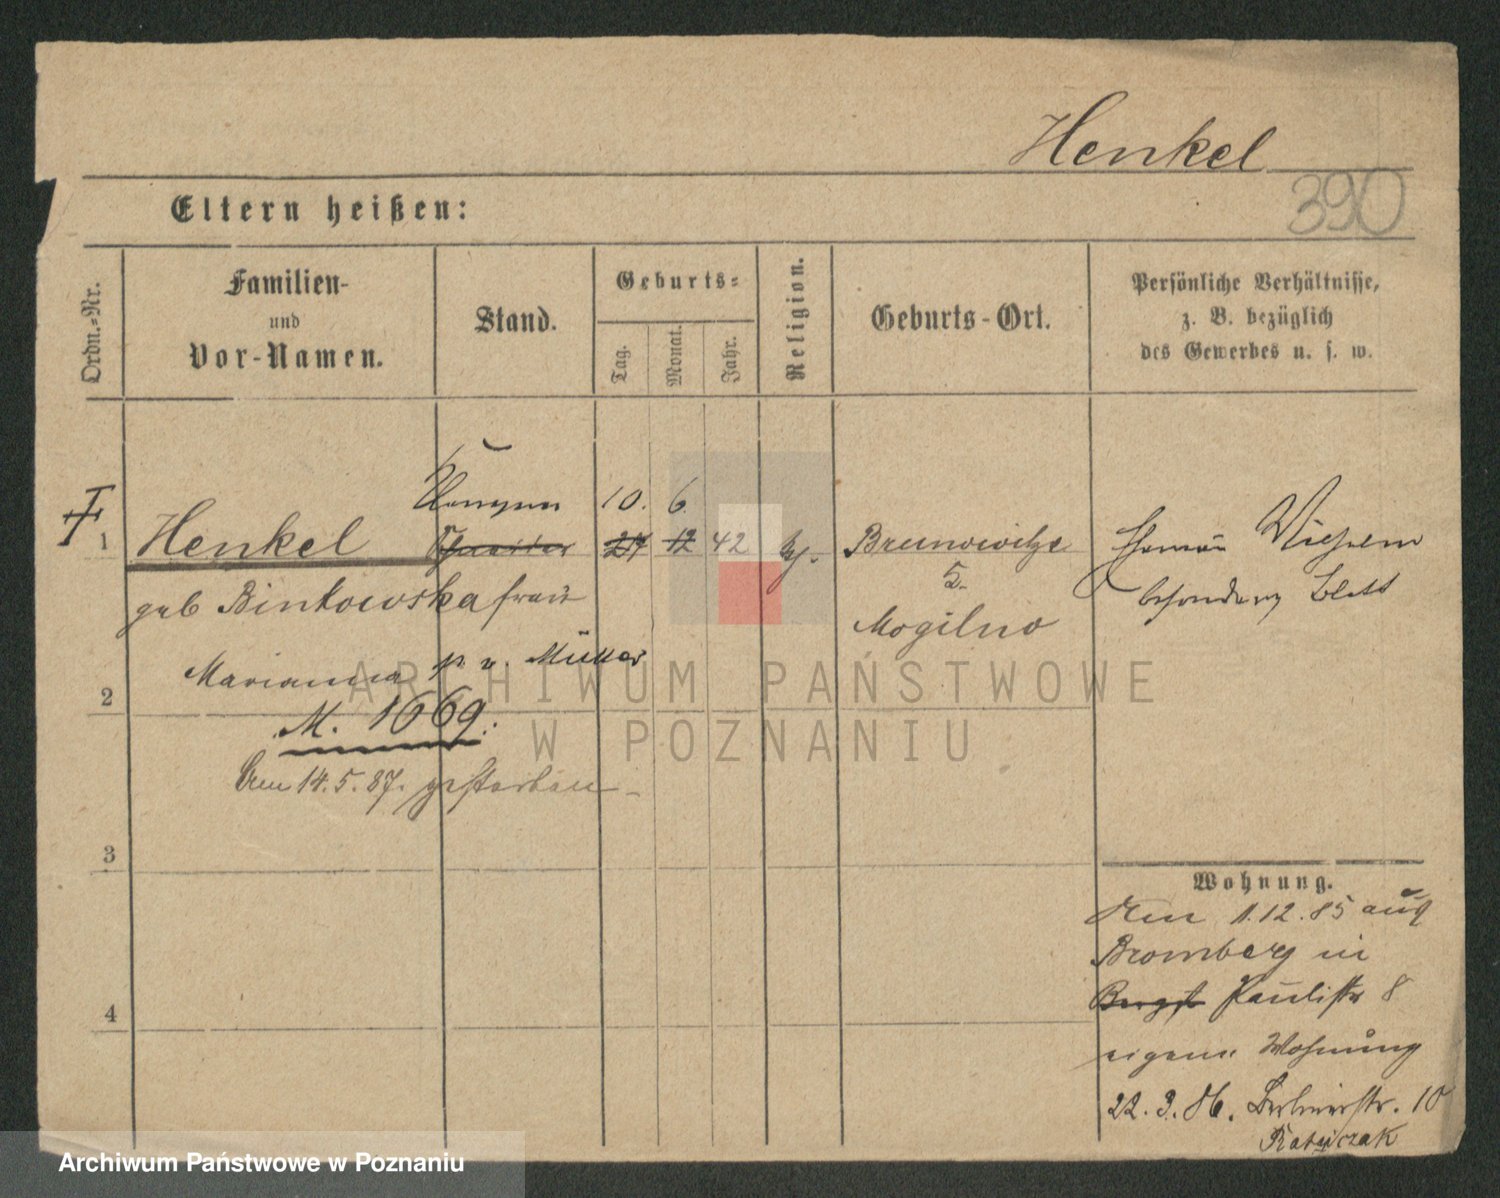 Henkel
390
Eltern heißen:
Ordn.-Nr.
Familien-
und
Vor-Namen.
Stand.
Geburts-
Tag.
Monat.
Jahr.
Religion.
Geburts-Ort.
Persönliche Verhältnisse,
z. B. bezüglich
des Gewerbes u. s. w.
10. 6.
1 Henkel 27 12 42 Brunowitze
geb Binkowska frau
Mogilno
Wilhelm
besonderes Blatt
Marianna p. v. Müller
2
M. 1669.
Am 14.5.87. gestorben
3
4
Wohnung.
Am 1.12.85 aus
Bromberg in
Bergstr Paulistr 8
eigene Wohnung
22.3.86. Berlinerstr. 10
Ratajczak
ARCHIWUM PAŃSTWOWE
W POZNANIU
Archiwum Państwowe w Poznaniu